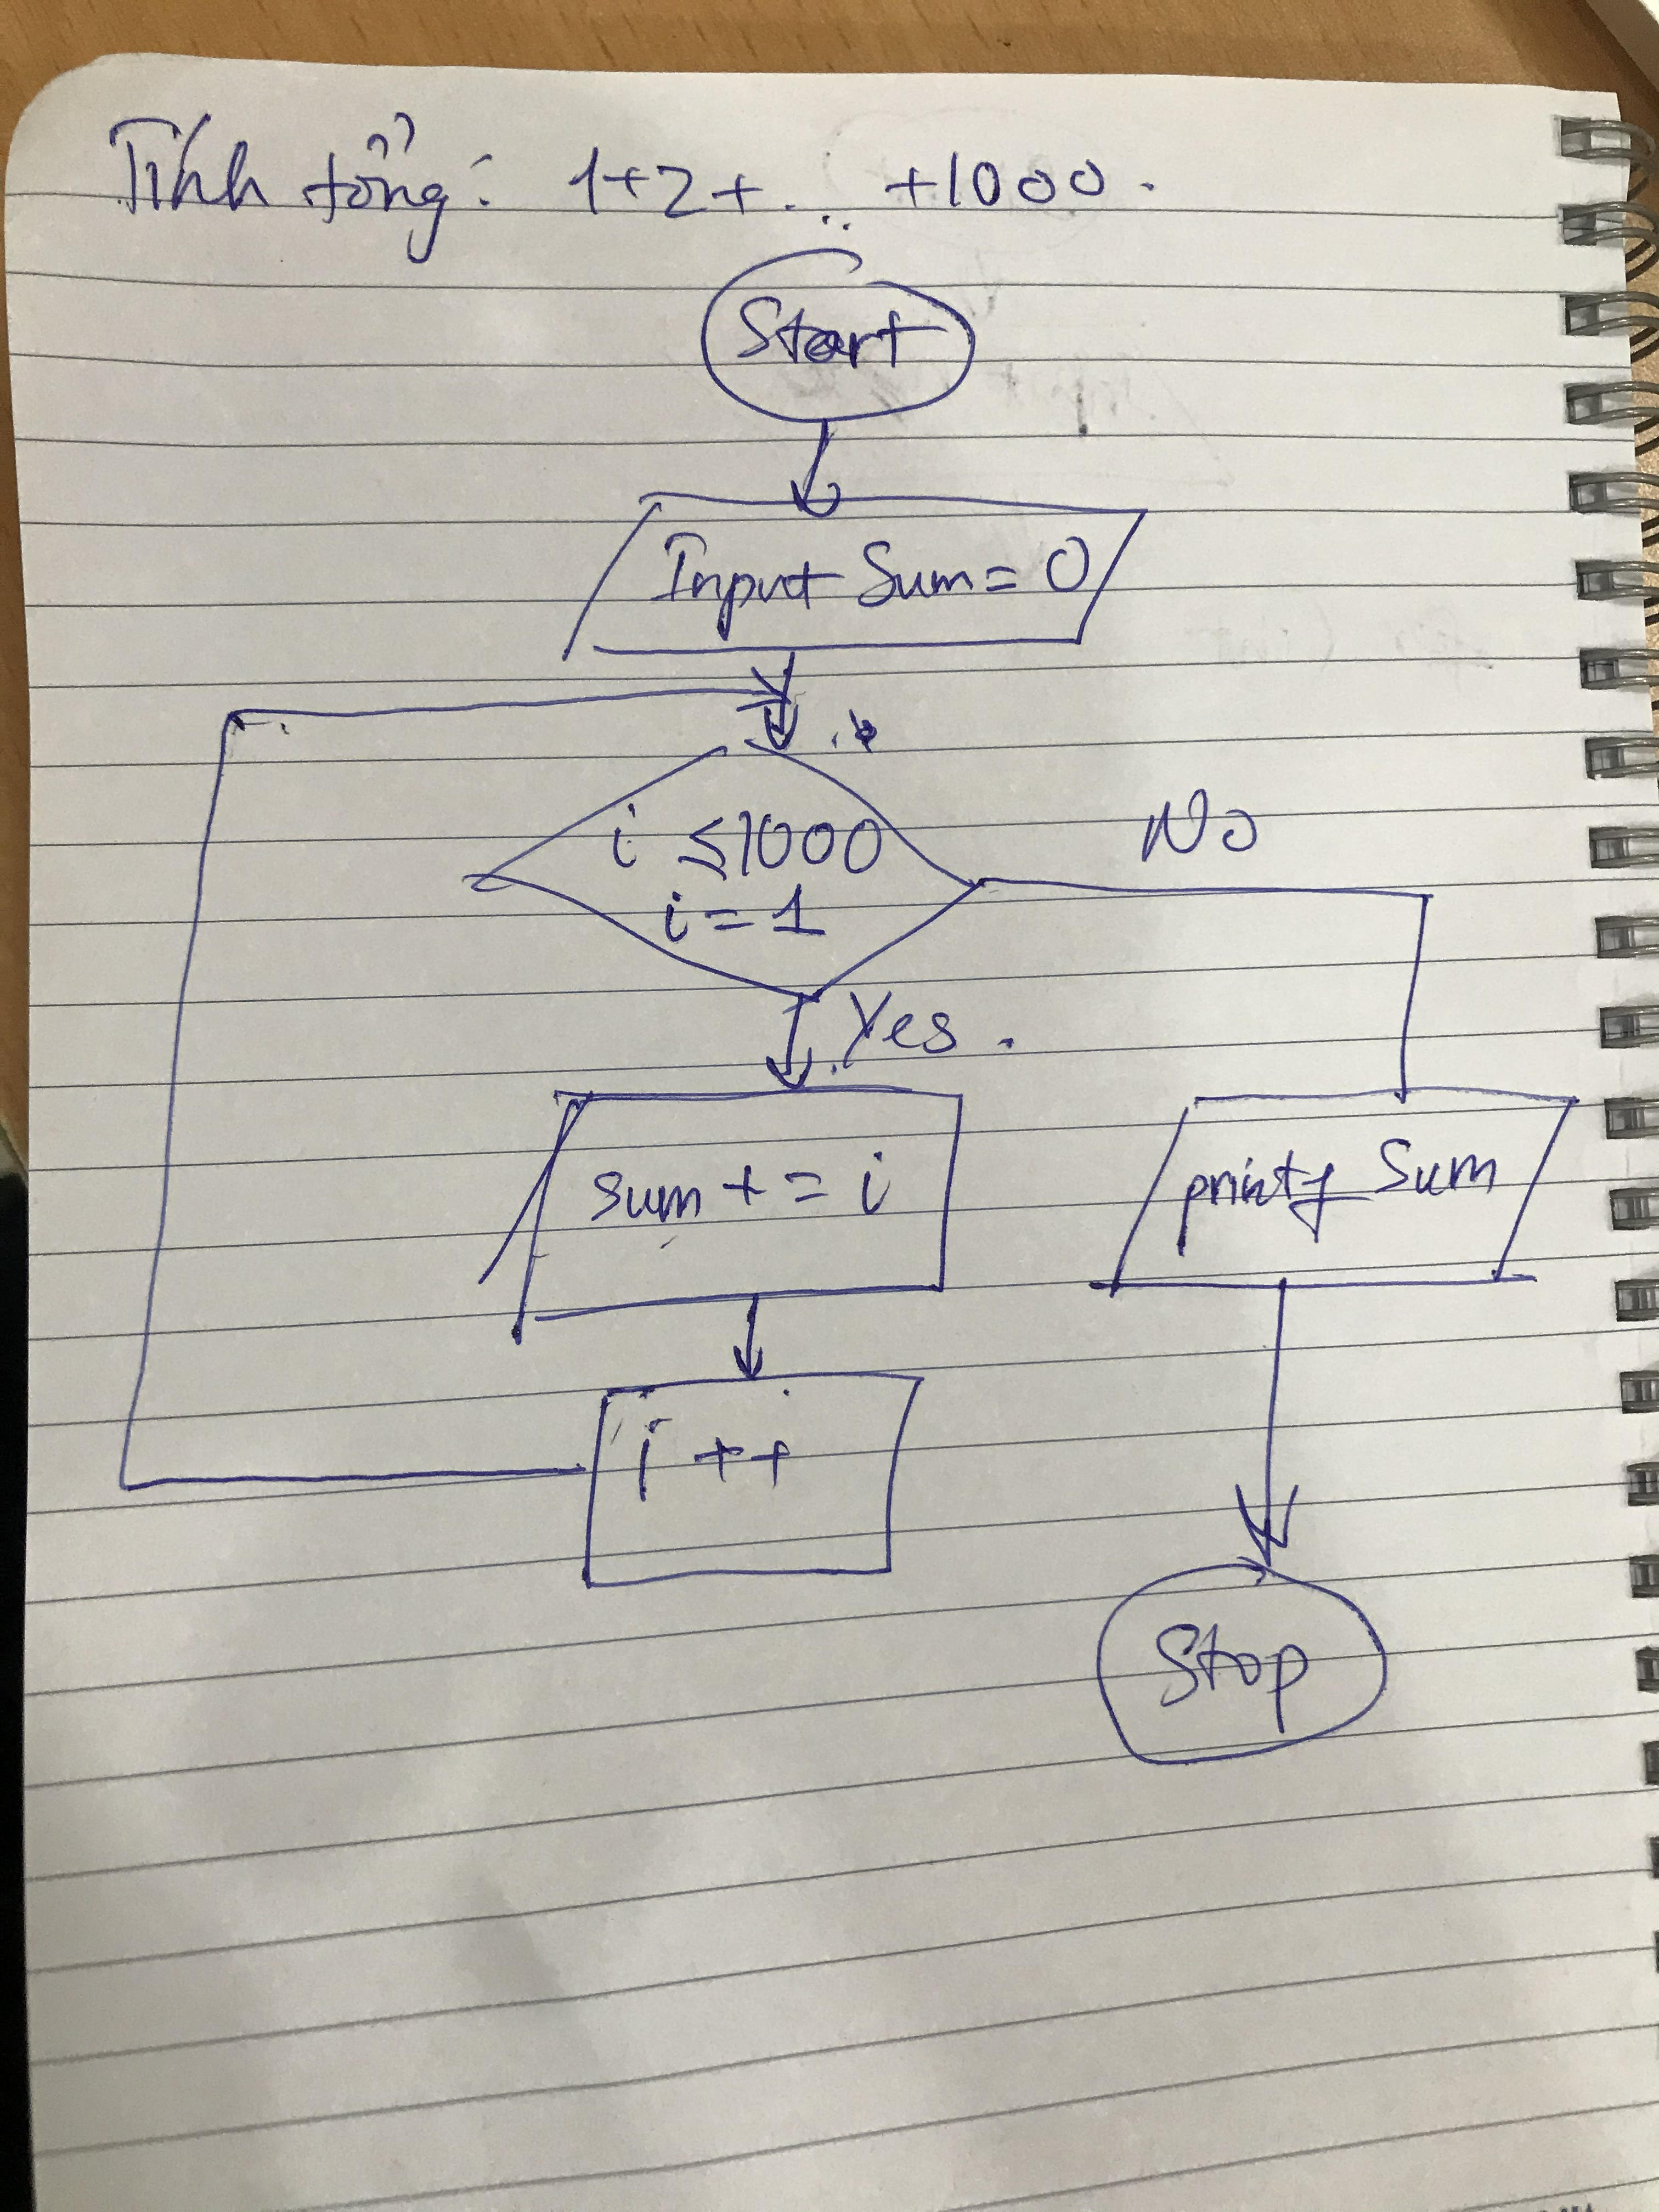 Tính tổng: 1+2+ ... +1000.
Start
Input Sum = 0
i ≤ 1000
i = 1
No
Yes.
sum + = i
printf Sum
i ++
Stop